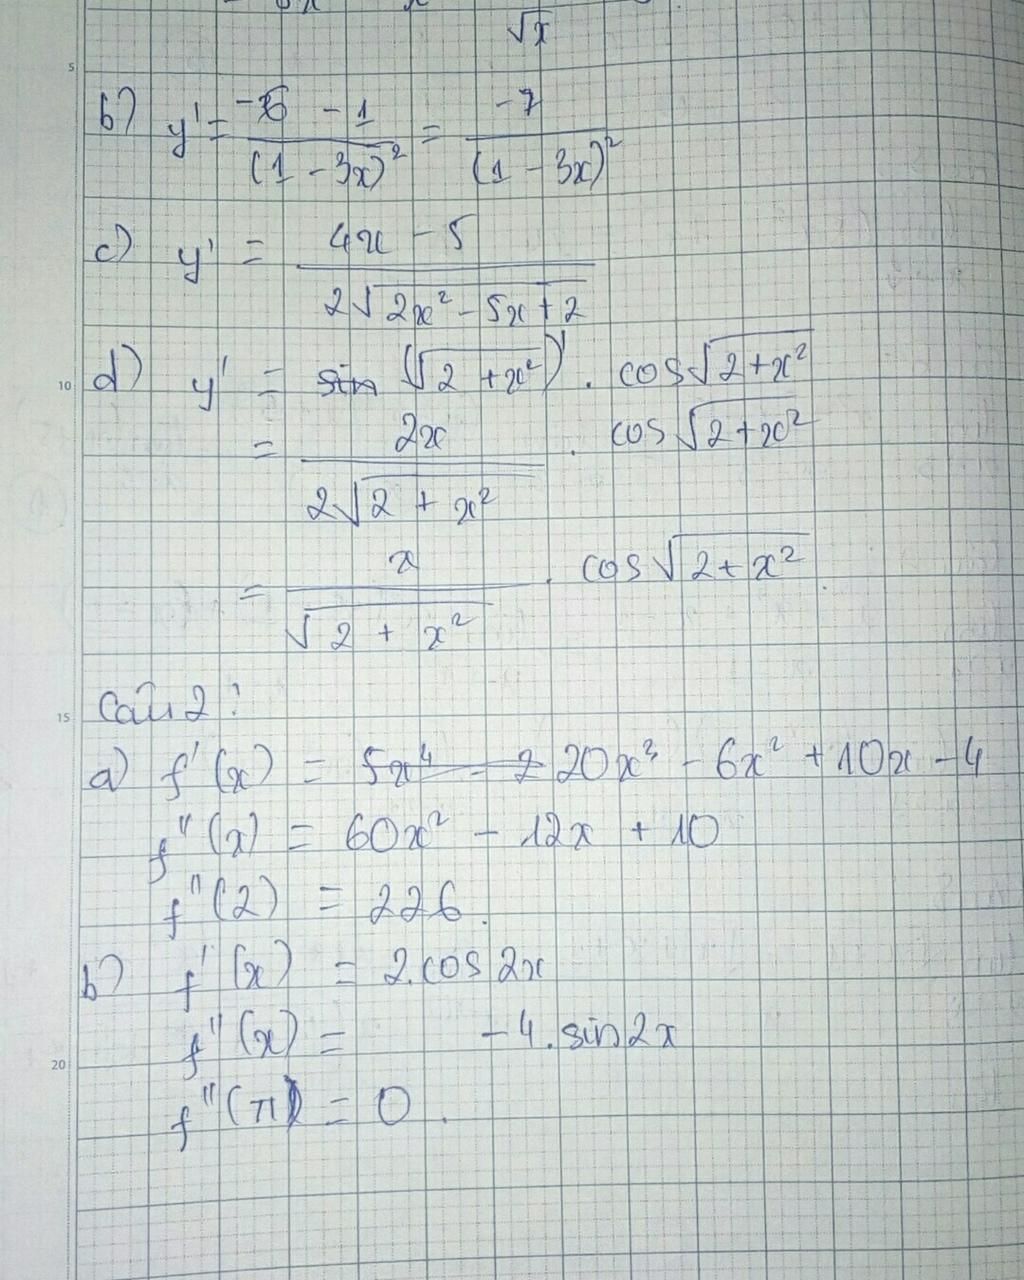 √x
5
b) y' = (-6 - 1)/(1 - 3x)² = -7/(1 - 3x)²
c) y' = (4x - 5)/(2√(2x² - 5x + 2))
10
d) y' = (√(2 + x²))' . cos√(2 + x²)
= 2x/(2√(2 + x²)) . cos√(2 + x²)
= x/√(2 + x²) . cos√(2 + x²)
15
Câu 2 :
a) f'(x) = 20x³ - 6x² + 10x - 4
f''(x) = 60x² - 12x + 10
f''(2) = 226.
b) f'(x) = 2.cos 2x
f''(x) = -4.sin 2x
20
f''(π) = 0.